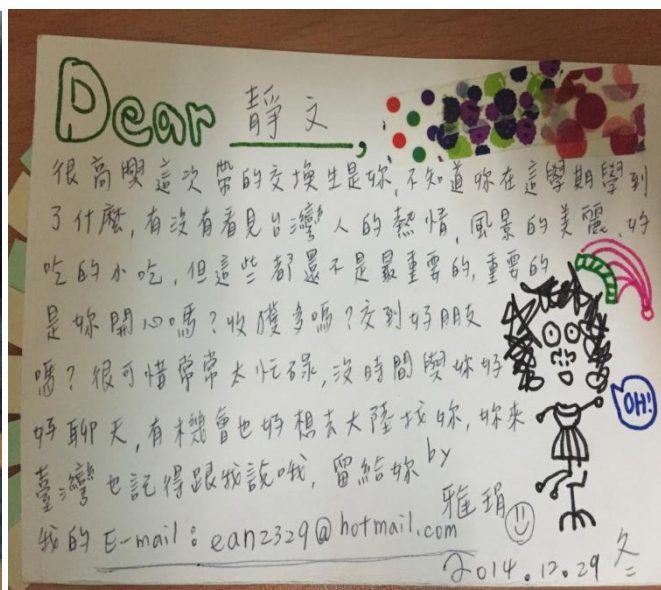 Dear 靜文,
很高興這次帶的交換生是妳,不知道妳在這學期學到
了什麼,有沒有看見台灣人的熱情,風景的美麗、好
吃的小吃,但這些都還不是最重要的,重要的
是妳開心嗎?收穫多嗎?交到好朋友
嗎?很可惜常常太忙碌,沒時間與妳好
好聊天,有機會也好想去大陸找妳,妳來
臺灣也記得跟我說哦,留給妳 by
雅琄
我的 E-mail:ean2329@hotmail.com
2014.12.29 冬
OH!